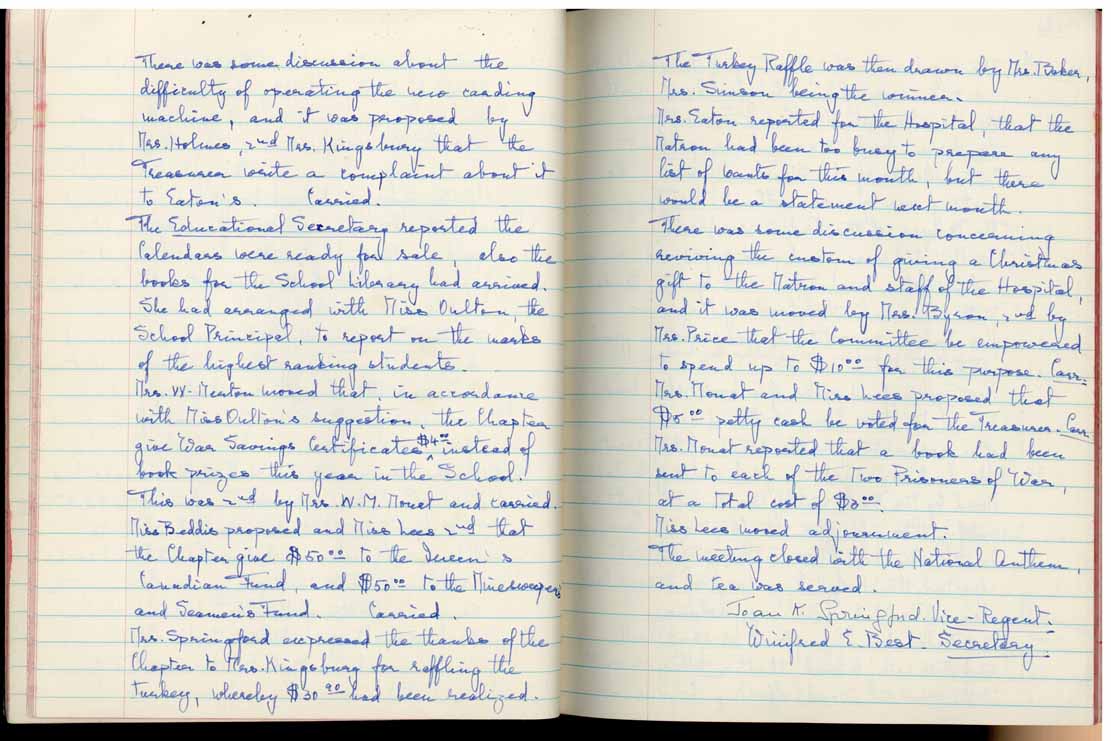 There was some discussion about the
difficulty of operating the new carding
machine, and it was proposed by
Mrs. Holmes, 2nd Mrs. Kingsbury that the
Treasurer write a complaint about it
to Eaton's. Carried.
The Educational Secretary reported the
Calendars were ready for sale, also the
books for the School Library had arrived.
She had arranged with Miss Oulton, the
School Principal, to report on the marks
of the highest ranking students.
Mrs. W- Menton moved that, in accordance
with Miss Oulton's suggestion, the Chapter
give War Savings Certificates $4.00 instead of
book prizes this year in the School.
This was 2nd by Mrs. W.M. Mouat and carried.
Miss Beddis proposed and Miss Lees 2nd that
the Chapter give $50.00 to the Queen's
Canadian Fund, and $50.00 to the Minesweepers
and Seamen's Fund. Carried.
Mrs. Springford expressed the thanks of the
Chapter to Mrs. Kingsbury for raffling the
Turkey, whereby $30.90 had been realized.
The Turkey Raffle was then drawn by Mrs. Baker,
Mrs. Simson being the winner.
Mrs. Eaton reported for the Hospital, that the
Matron had been too busy to prepare any
list of wants for this month, but there
would be a statement next month.
There was some discussion concerning
reviving the custom of giving a Christmas
gift to the Matron and staff of the Hospital,
and it was moved by Mrs. Byron, 2nd by
Mrs. Price that the Committee be empowered
to spend up to $10.00 for this purpose. Carr.
Mrs. Mouat and Miss Lees proposed that
petty cash be voted for the Treasurer. Carr.
Mrs. Mouat reported that a book had been
sent to each of the Two Prisoners of War,
at a total cost of
Miss Lees moved adjournment.
The meeting closed with the National Anthem,
and tea was served.
Joan K. Springford. Vice-Regent.
Winifred E. Best. Secretary.